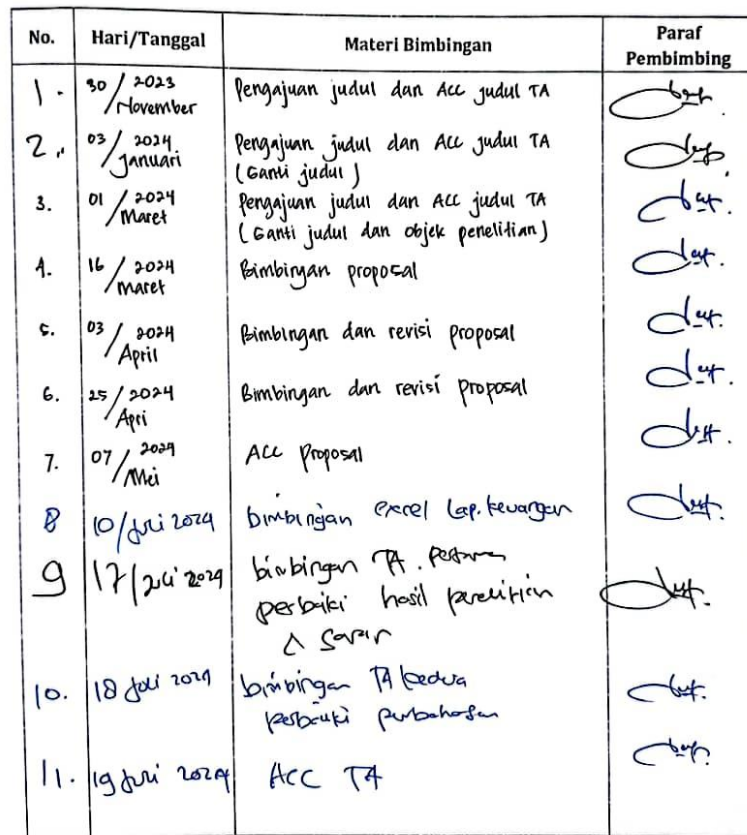 No. Hari/Tanggal Materi Bimbingan Paraf Pembimbing
1. 30/November 2023 Pengajuan judul dan Acc judul TA
2. 03/Januari 2024 Pengajuan judul dan Acc judul TA
(Ganti judul)
3. 01/Maret 2024 Pengajuan judul dan Acc judul TA
(Ganti judul dan objek penelitian)
4. 16/Maret 2024 Bimbingan proposal
5. 03/April 2024 Bimbingan dan revisi proposal
6. 25/Apri 2024 Bimbingan dan revisi proposal
7. 07/Mei 2024 Acc Proposal
8 10/Juli 2024 bimbingan excel Lap. keuangan
9 17/Juli 2024 bimbingan TA. Pertama
perbaiki hasil penelitian
& saran
10. 18 Juli 2024 bimbingan TA kedua
perbaiki pembahasan
11. 19 Juli 2024 ACC TA